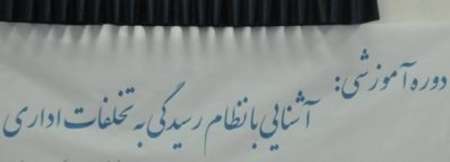 دوره آموزشی:
آشنایی با نظام رسیدگی به تخلفات اداری